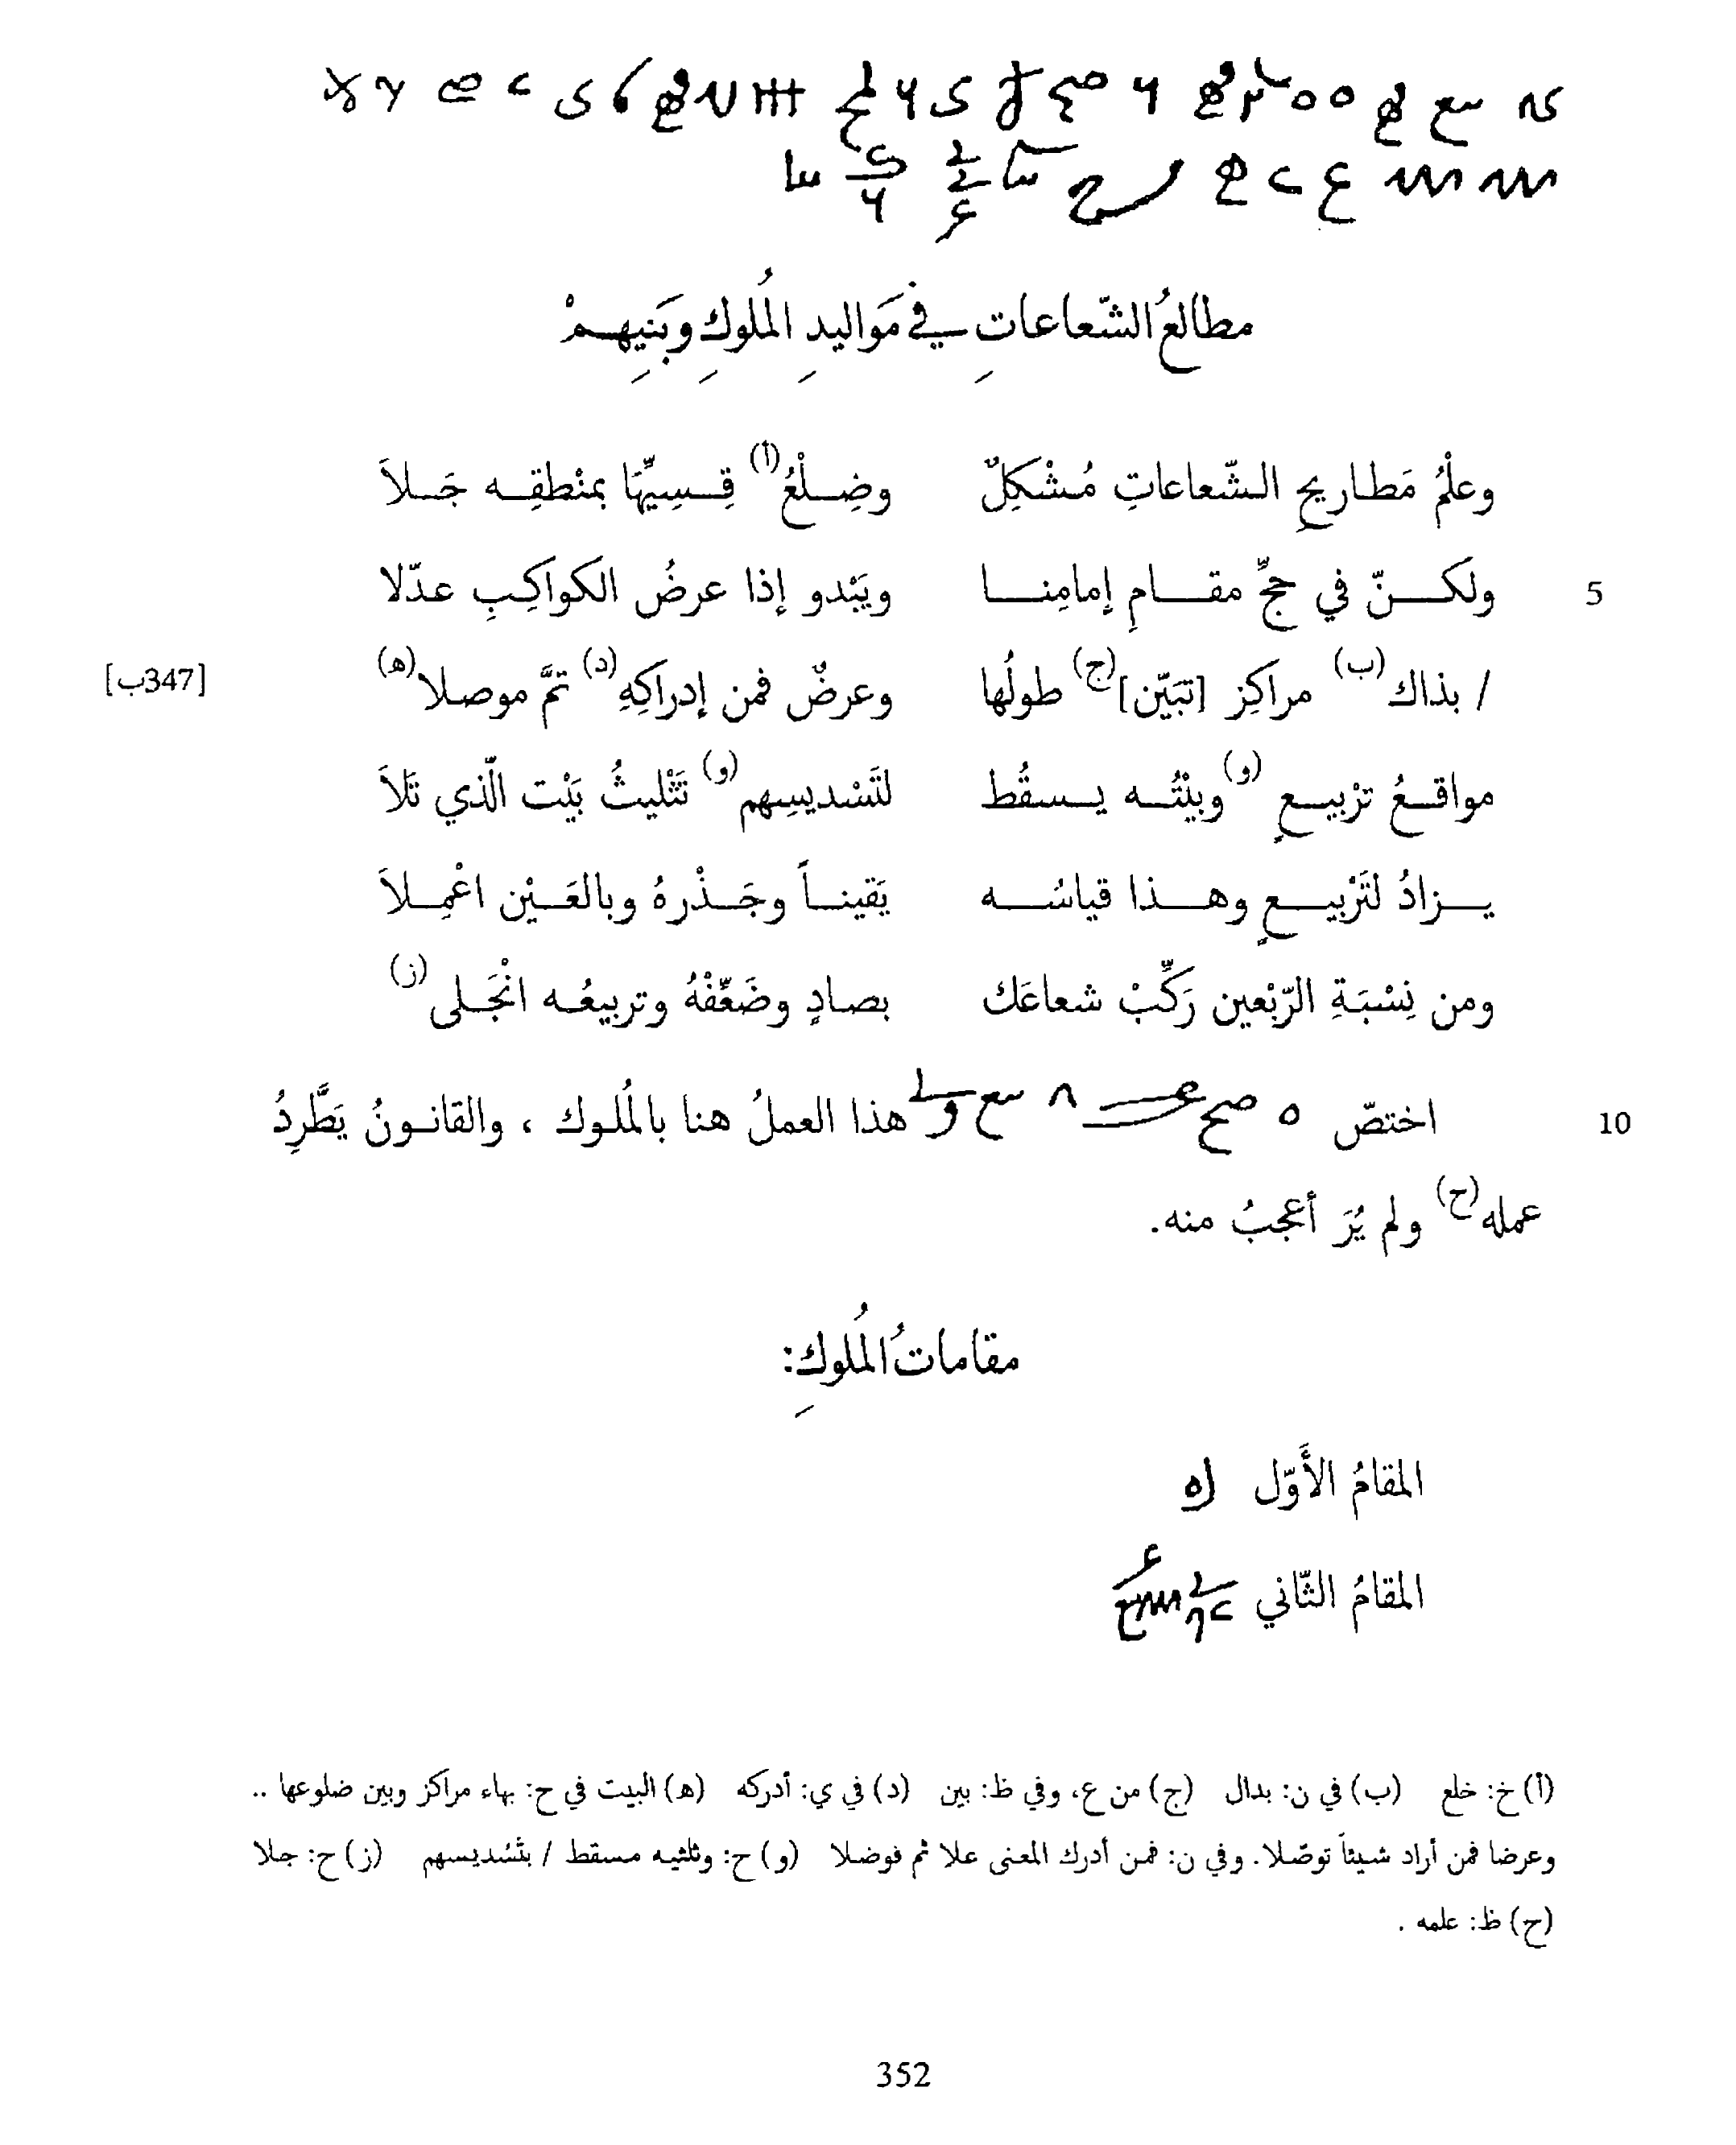 مطالعُ الشّعاعاتِ في مَواليدِ المُلوكِ وبَنِيهِمْ
وعلْمُ مَطاريحِ الشّعاعاتِ مُشْكِلٌ وضِلْعُ(أ) قِسِيِّهَا بمنْطقِه جَلاَ
ولكنّ في حجِّ مقامِ إمامِنا ويَبْدو إذا عرضُ الكواكِبِ عدّلا 5
/ بذاك(ب) مراكِز [تبَيّن](ج) طولُها وعرضٌ فمن إدراكِهِ(د) تمَّ موصلا(ه) [347ب]
مواقعُ ترْبيعٍ (و)وبيْتُه يسقُط لتَسْديسِهم(و) تَثْليثُ بَيْت الّذي تَلاَ
يزادُ لتَرْبيعٍ وهذا قياسُه يَقيناً وجَذْرهُ وبالعَيْن اعْمِلاَ
ومن نِسْبَةِ الرّبْعين رَكِّبْ شعاعَك بصادٍ وضَعِّفْهُ وتربيعُه انْجَلى(ز)
اختصّ هذا العملُ هنا بالمُلوك ، والقانونُ يَطَّرِدُ 10
عمله(ح) ولم يُرَ أعجبُ منه.
مقاماتُ المُلوكِ:
المقامُ الأَوّل
المقامُ الثّاني
(أ) خ: خلع (ب) في ن: بدال (ج) من ع، وفي ظ: بين (د) في ي: أدركه (ه) البيت في ح: بهاء مراكز وبين ضلوعها ..
وعرضا فمن أراد شيئاً توصّلا. وفي ن: فمن أدرك المعنى علا ثم فوضلا (و) ح: وثلثيه مسقط / بتَسْديسهم (ز) ح: جلا
(ح) ظ: علمه .
352